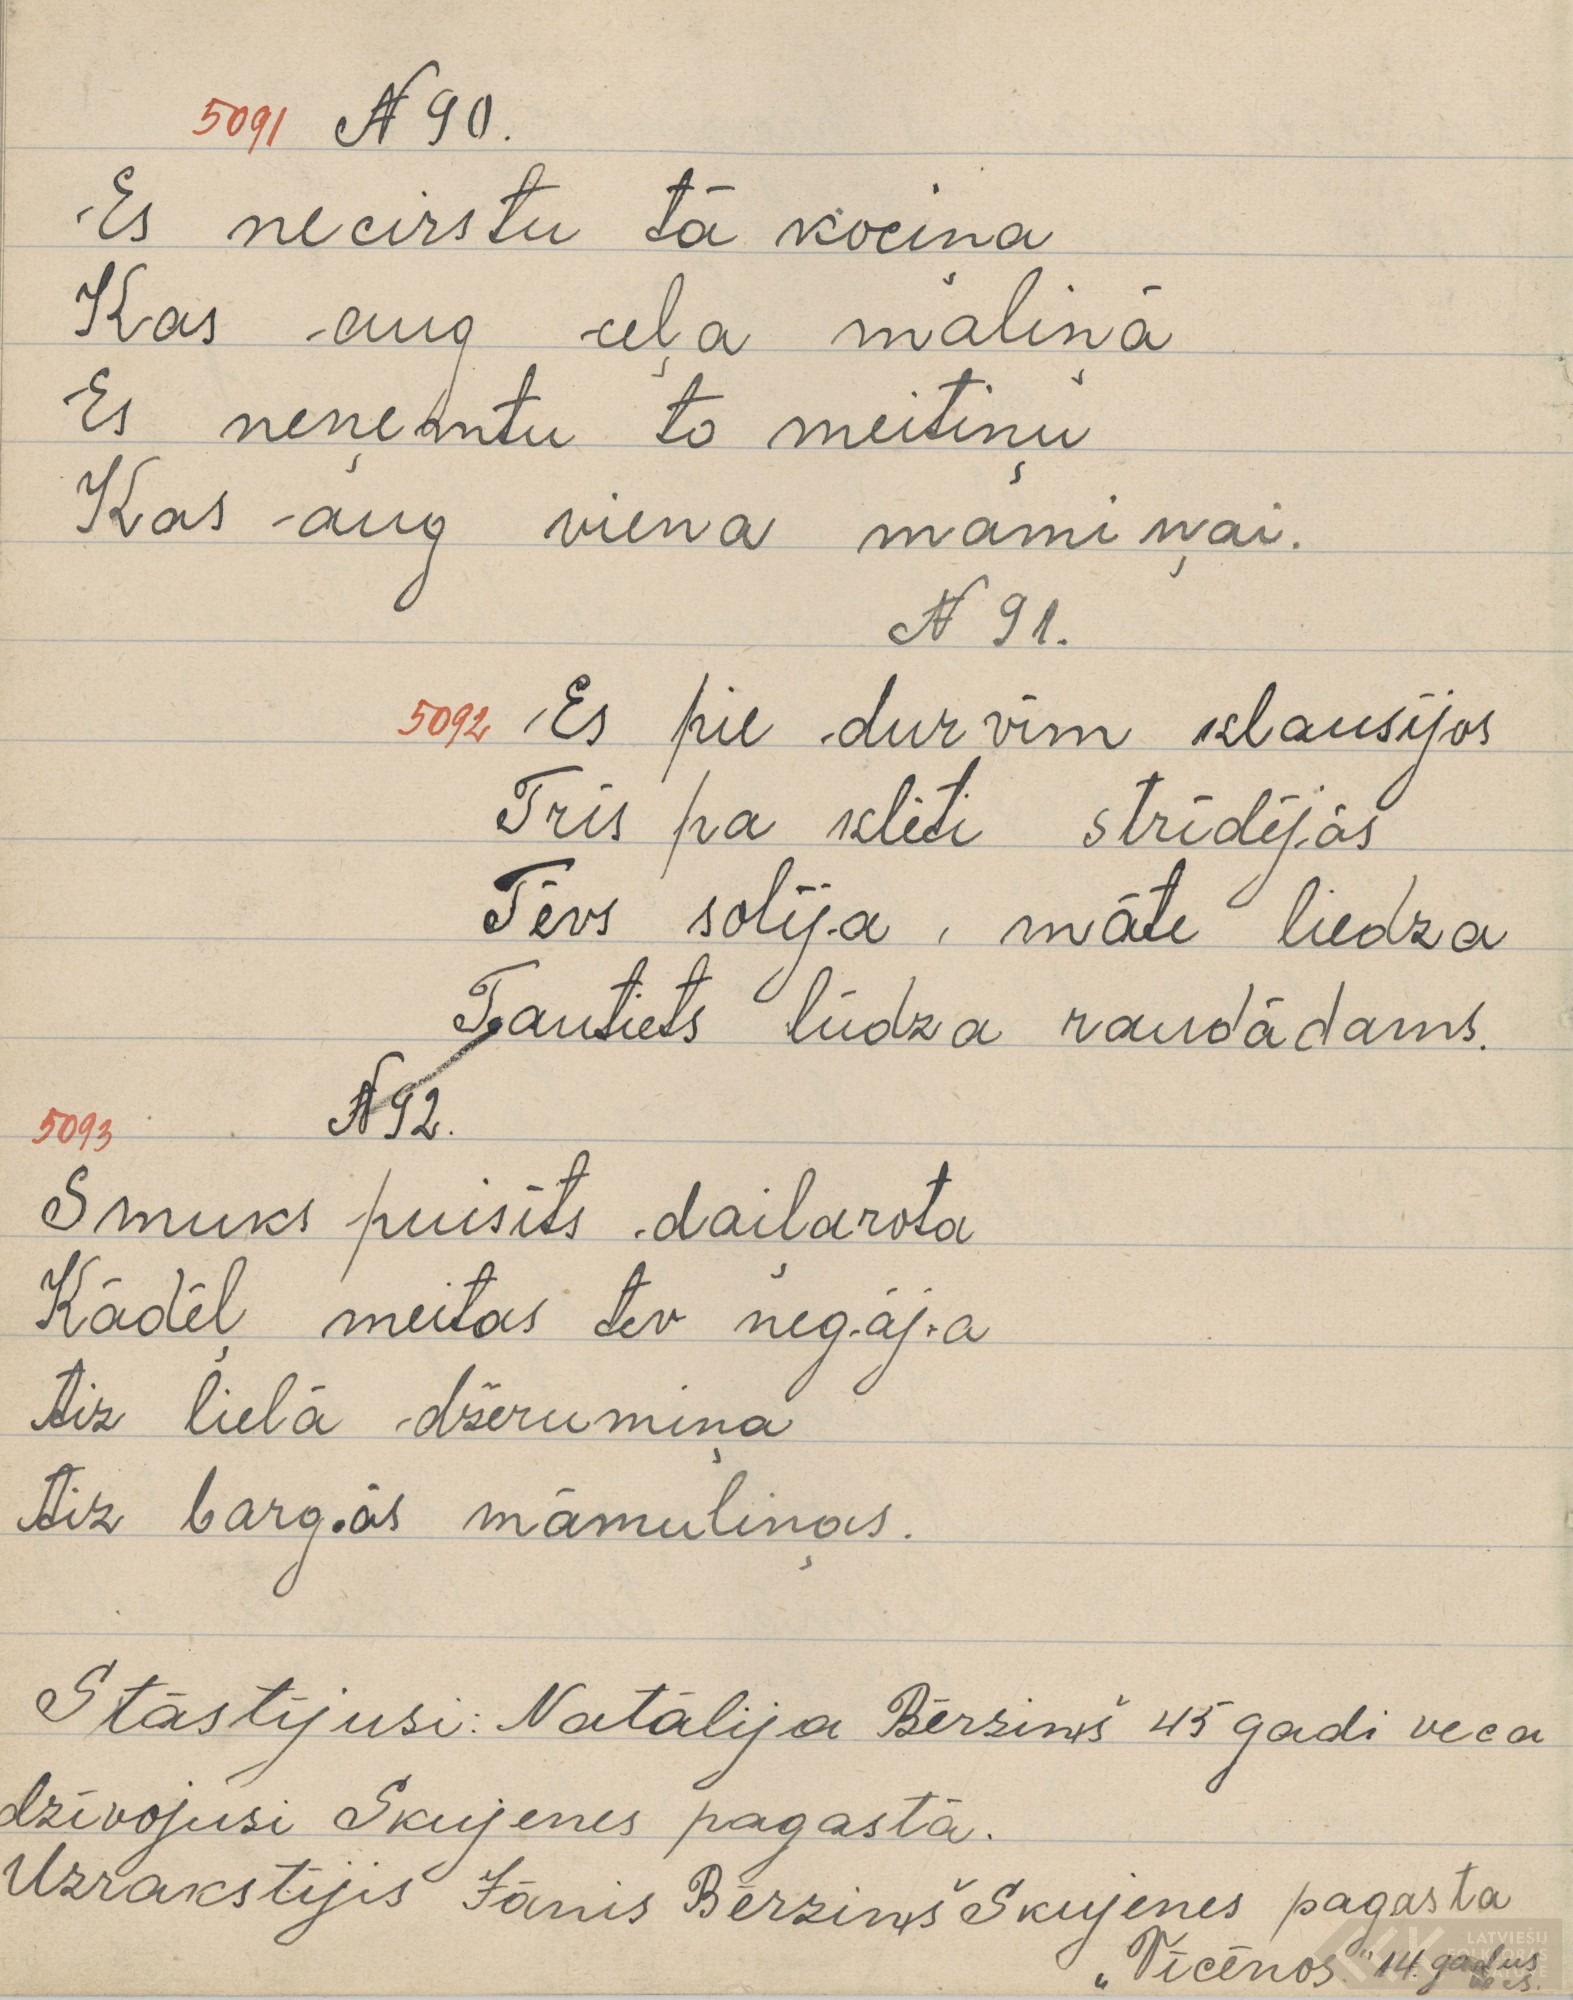 5091 N 90.
Es necirstu tā kociņa
Kas aug ceļa maliņā
Es neņemtu to meitiņu
Kas aug viena māmiņai.
N 91.
5092 Es pie durvīm klausījos
Trīs pa klēti strīdējās
Tēvs solīja, māte liedza
Tautiets lūdza raudādams.
N 92.
5093
Smuks puisīts daiļarota
Kādēļ meitas tev negāja
Aiz lielā džērumiņa
Aiz bargās māmuliņas.
Stāstījusi: Natālija Bērziņš 45 gadi veca
dzīvojusi Skujenes pagastā.
Uzrakstījis Jānis Bērziņš Skujenes pagasta
„Vīcēnos" 14. gadus
vecs.